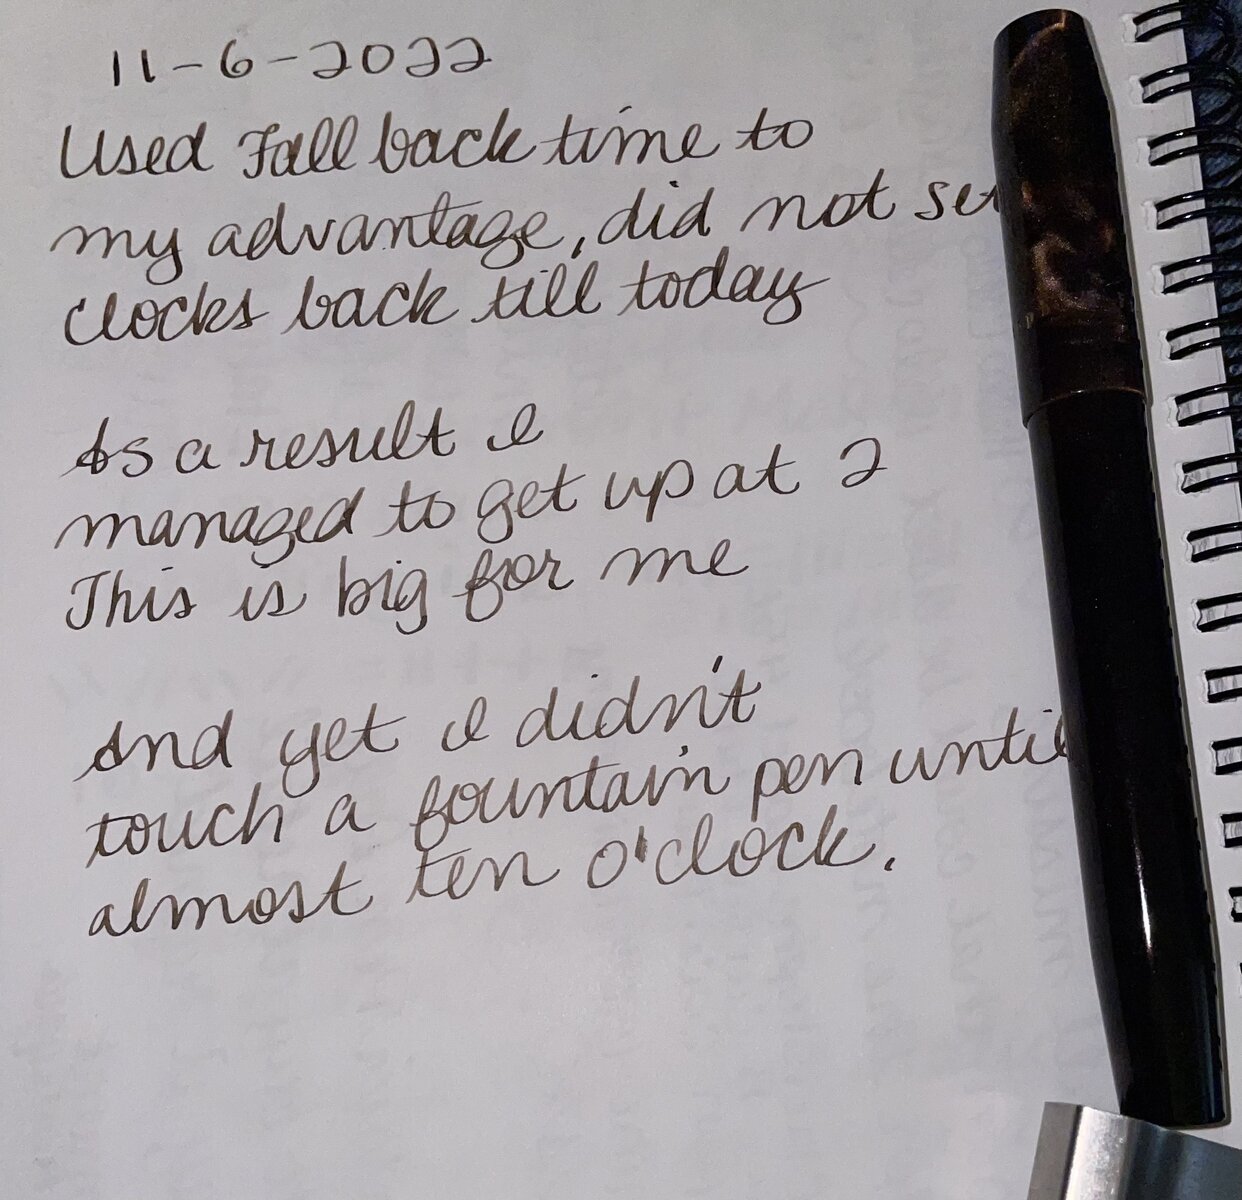 11-6-2022
Used Fall back time to
my advantage, did not set
clocks back till today
As a result I
managed to get up at 2
This is big for me
And yet I didn't
touch a fountain pen until
almost ten o'clock.